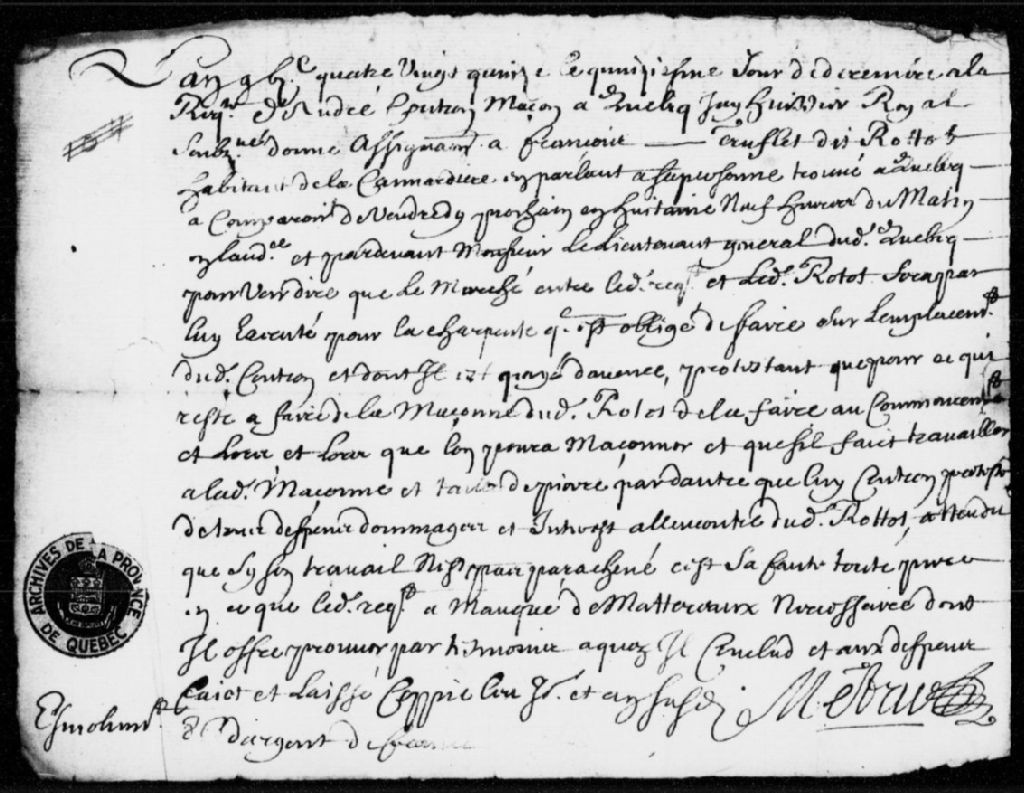 L'an g bj.c quatre Vingt quinze Le quinziesme Jour de decembre a la
Reqte. d'André Coutron Maçon a Quebeq Jay huissier Royal
Soubz.né donné Assignaõn a françois — Truflet dit Rottot
habitant de la Cannardiere en parlant a sa personne trouvé a Quebeq
a Comparoir de Vendredy prochain en huitaine Neuf heures du Matin
en laud.ce et pardevant Monsieur Le Lieutenant general dud. Quebeq
pour Voir dire que Le Marché entre led. reqt et Led. Rotot Sera par
luy Executé pour la charpente q. est obligé de faire Sur Lemplacemt.
dud. Coutron et dont Il est payé davance, protestant que pour ce qui
reste a faire de la Maçonne dud. Rotos de la faire au Commencemt
et Lors que Lon poura Maçonner et que sil faict travailler
a lad. Maçonne et de pierre par dautre que luy Coutron proteste
de tous despens dommages et Interest allencontre dud. Rottot, attendu
que Sy Son travail Nest pas parachevé cest Sa faute toute pure
en ce que led. reqt a Manqué de Matteriaux Necessaires dont
Il offre prouver par tesmoins a quoy Il Conclud et aux despens
faict et Laissé Coppie Lou Jo. et an susd. Metru
d'argent de france
ARCHIVES DE LA PROVINCE DE QUEBEC